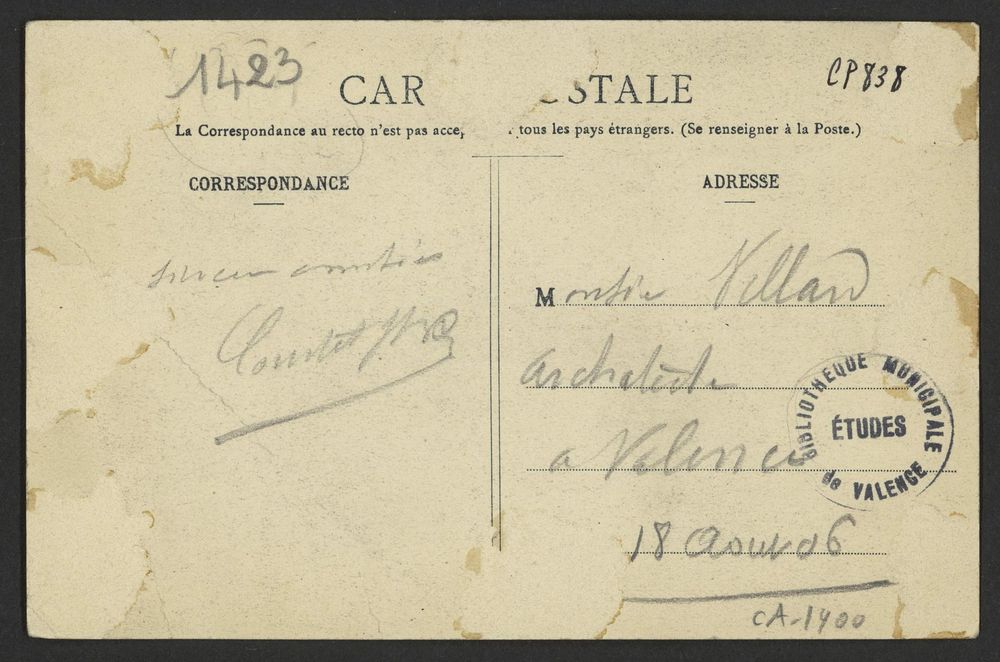 1423
CAR STALE
CP 838
La Correspondance au recto n'est pas acce, tous les pays étrangers. (Se renseigner à la Poste.)
CORRESPONDANCE
amitiés
ADRESSE
Monsie Villard
Architecte
a Valence
18 Aout 06
BIBLIOTHEQUE MUNICIPALE
ÉTUDES
de VALENCE
CA-1400